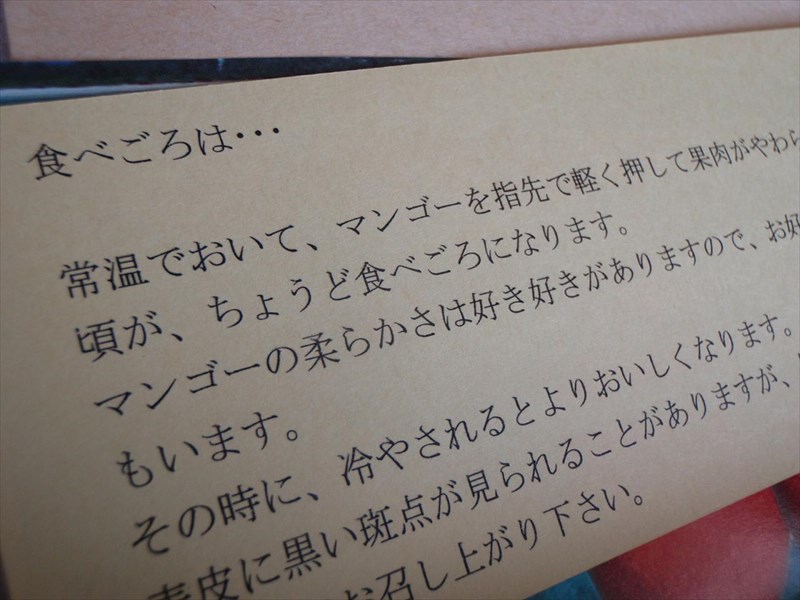 食べごろは・・・
常温でおいて、マンゴーを指先で軽く押して果肉がやわら
頃が、ちょうど食べごろになります。
マンゴーの柔らかさは好き好きがありますので、お好
もいます。
その時に、冷やされるとよりおいしくなります。
表皮に黒い斑点が見られることがありますが、
お召し上がり下さい。